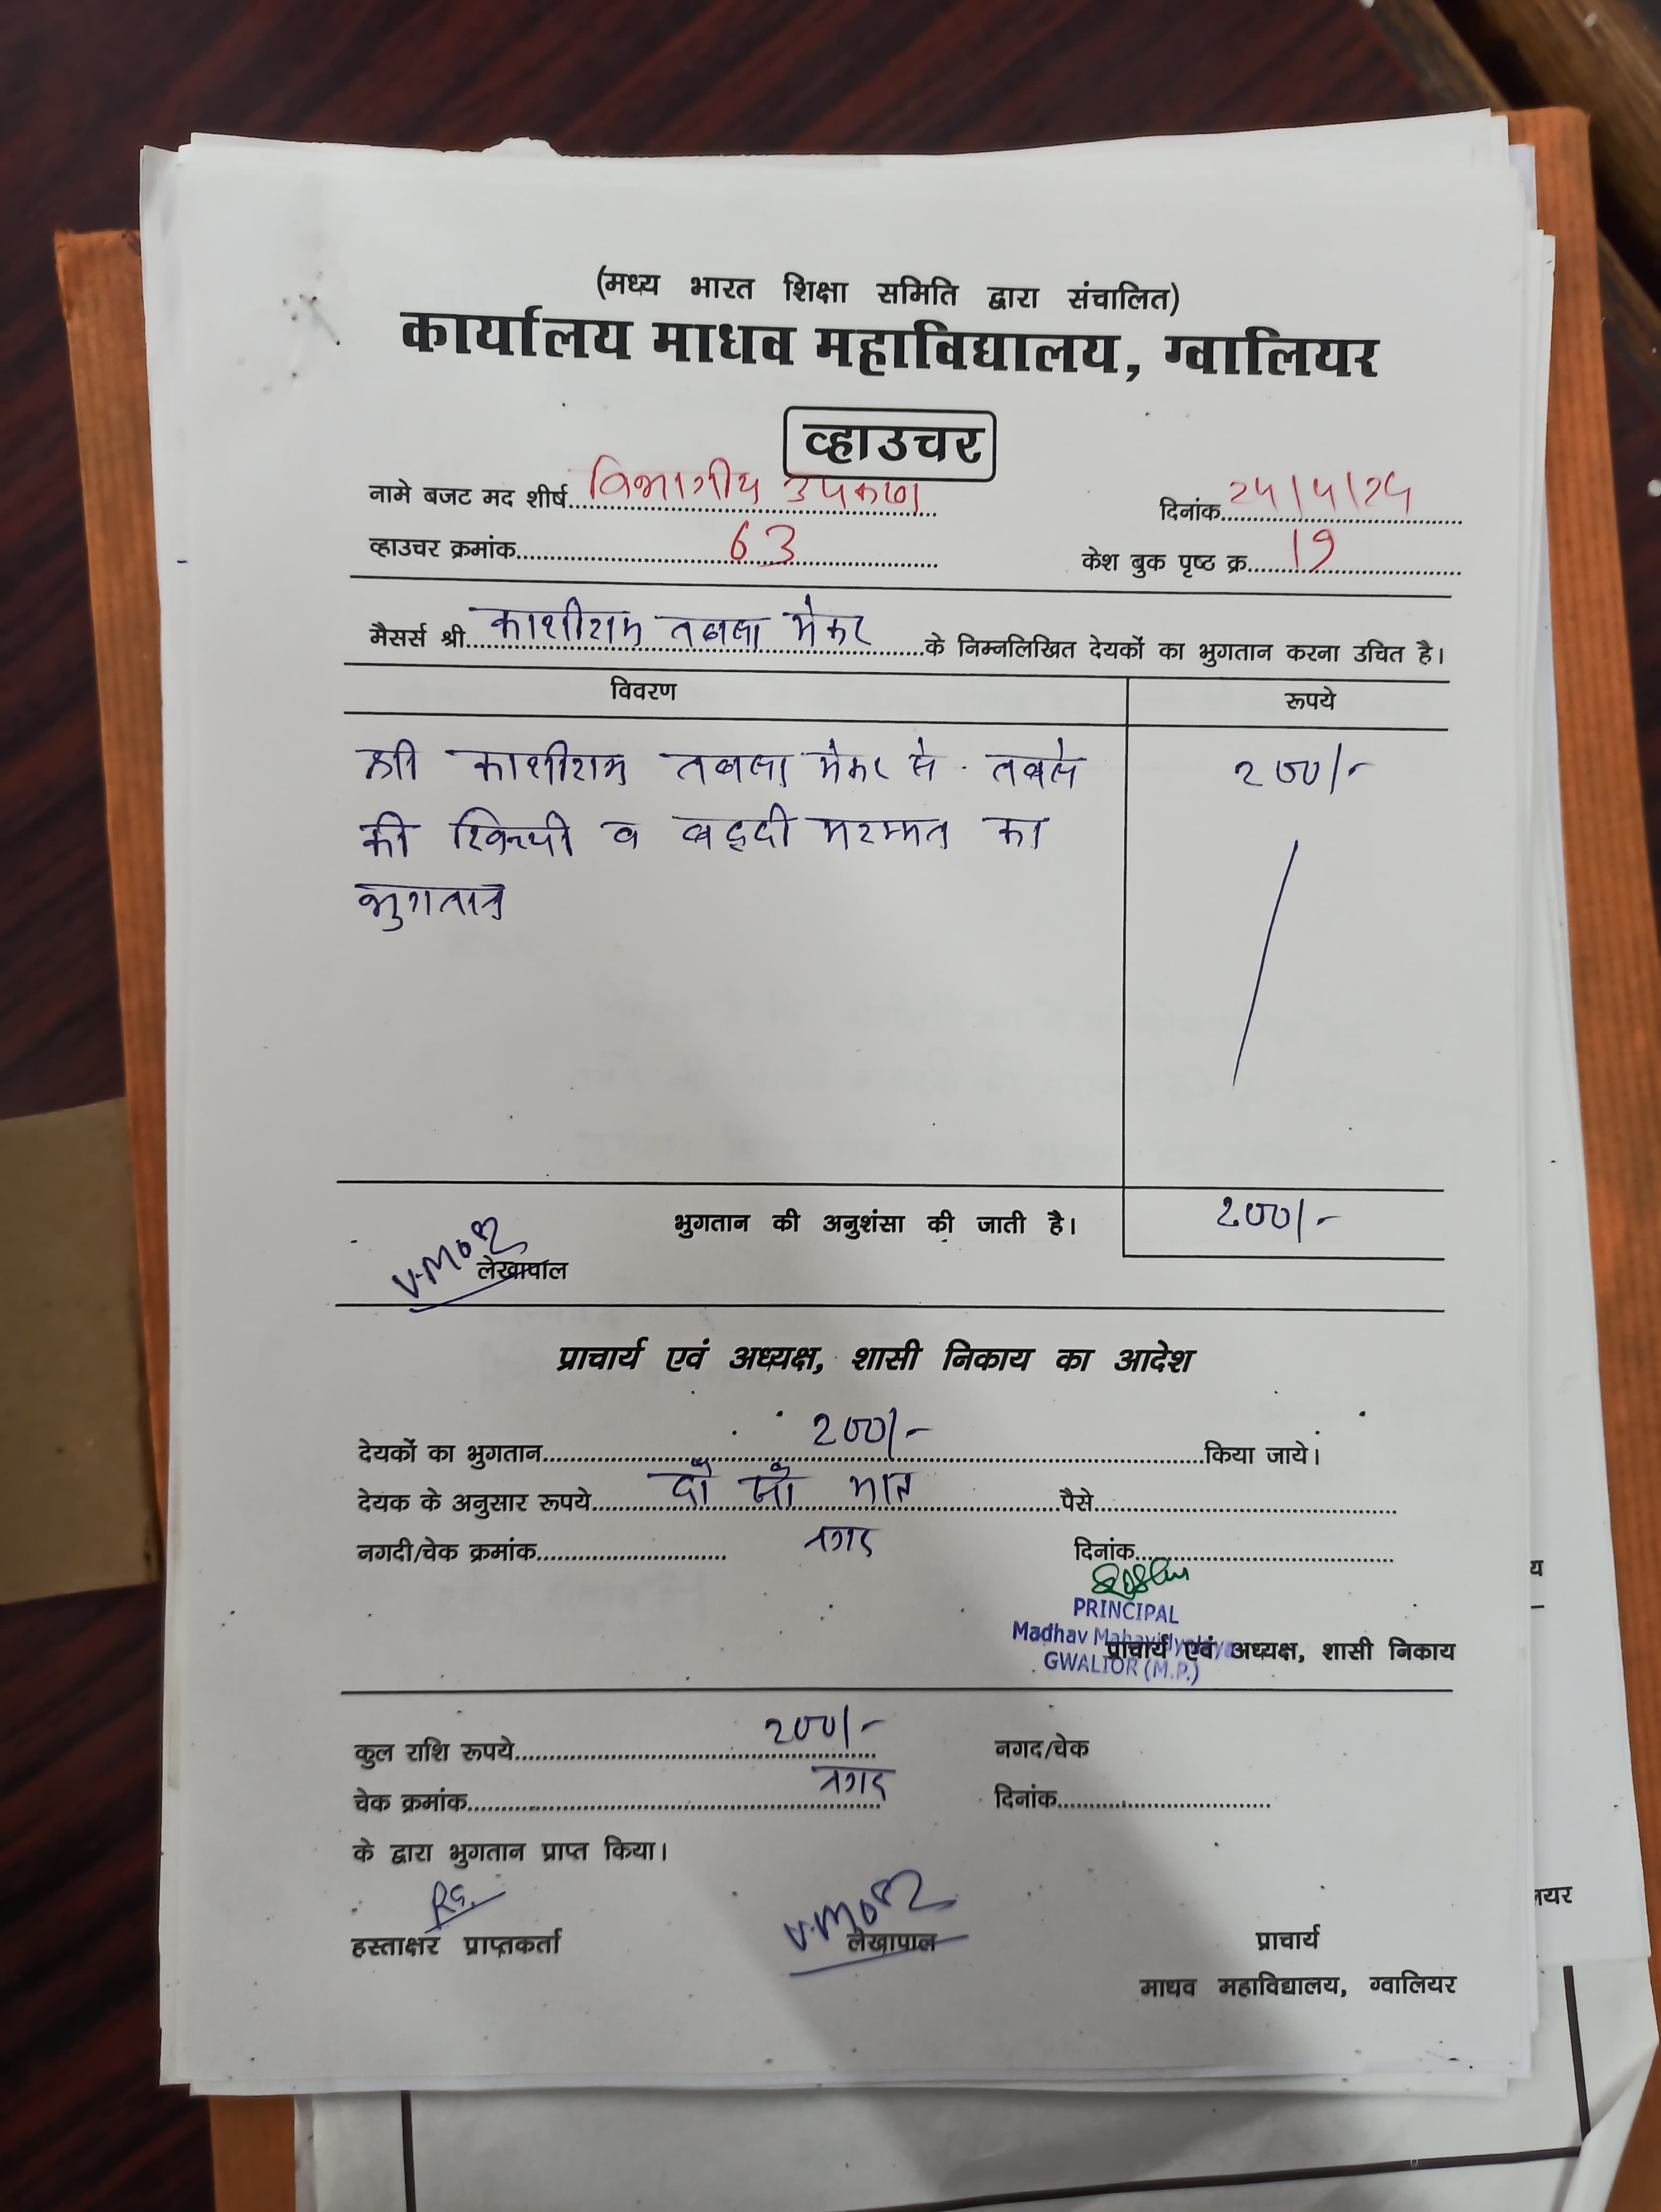 (मध्य भारत शिक्षा समिति द्वारा संचालित)
कार्यालय माधव महाविद्यालय, ग्वालियर
व्हाउचर
नामे बजट मद शीर्ष विभागीय उपकरण दिनांक
व्हाउचर क्रमांक 63 केश बुक पृष्ठ क्र. 19
मैसर्स श्री काशीराम तबला मेकर के निम्नलिखित देयकों का भुगतान करना उचित है।
विवरण रूपये
श्री काशीराम तबला मेकर से तबले 200/-
की व बद्दी मरम्मत का
भुगतान
भुगतान की अनुशंसा की जाती है। 200/-
लेखापाल
प्राचार्य एवं अध्यक्ष, शासी निकाय का आदेश
देयकों का भुगतान 200/- किया जाये।
देयक के अनुसार रूपये दो सौ मात्र पैसे
नगदी/चेक क्रमांक नगद दिनांक
PRINCIPAL
Madhav Mahavidyalaya
प्राचार्य एवं अध्यक्ष, शासी निकाय
GWALIOR (M.P.)
कुल राशि रूपये 200/- नगद/चेक
चेक क्रमांक नगद दिनांक
के द्वारा भुगतान प्राप्त किया।
हस्ताक्षर प्राप्तकर्ता लेखापाल प्राचार्य
माधव महाविद्यालय, ग्वालियर